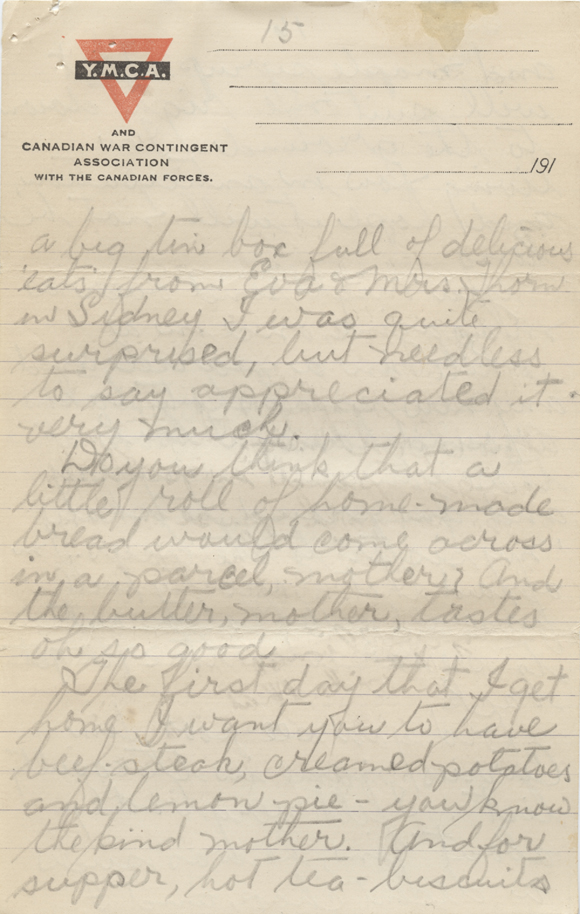 15
Y.M.C.A.
AND
CANADIAN WAR CONTINGENT
ASSOCIATION
WITH THE CANADIAN FORCES.
191
a big tin box full of delicious
'eats' from Eva & Mrs. Thorn
in Sidney I was quite
surprised, but needless
to say appreciated it
very much.
Do you think that a
little roll of home-made
bread would come across
in a parcel, mother? And
the butter, mother, tastes
oh so good
The first day that I get
home I want you to have
beef-steak, creamed potatoes
and lemon pie - you know
the kind mother. And for
supper, hot tea-biscuits